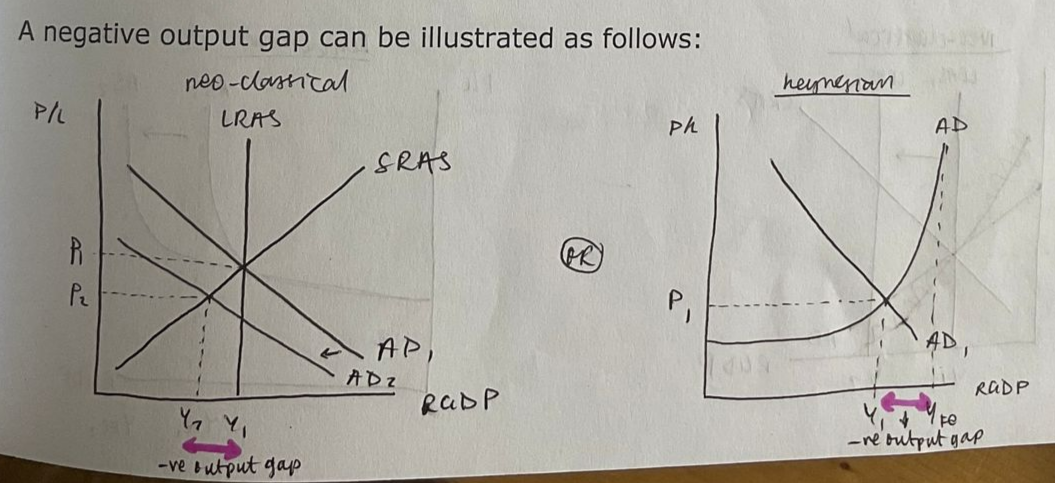 A negative output gap can be illustrated as follows:
neo-classical
P/L
LRAS
SRAS
P1
P2
AD1
AD2
RGDP
Y2 Y1
-ve output gap
OR
keynesian
P/L
AD
P1
AD1
RGDP
Y1 YFE
-ve output gap